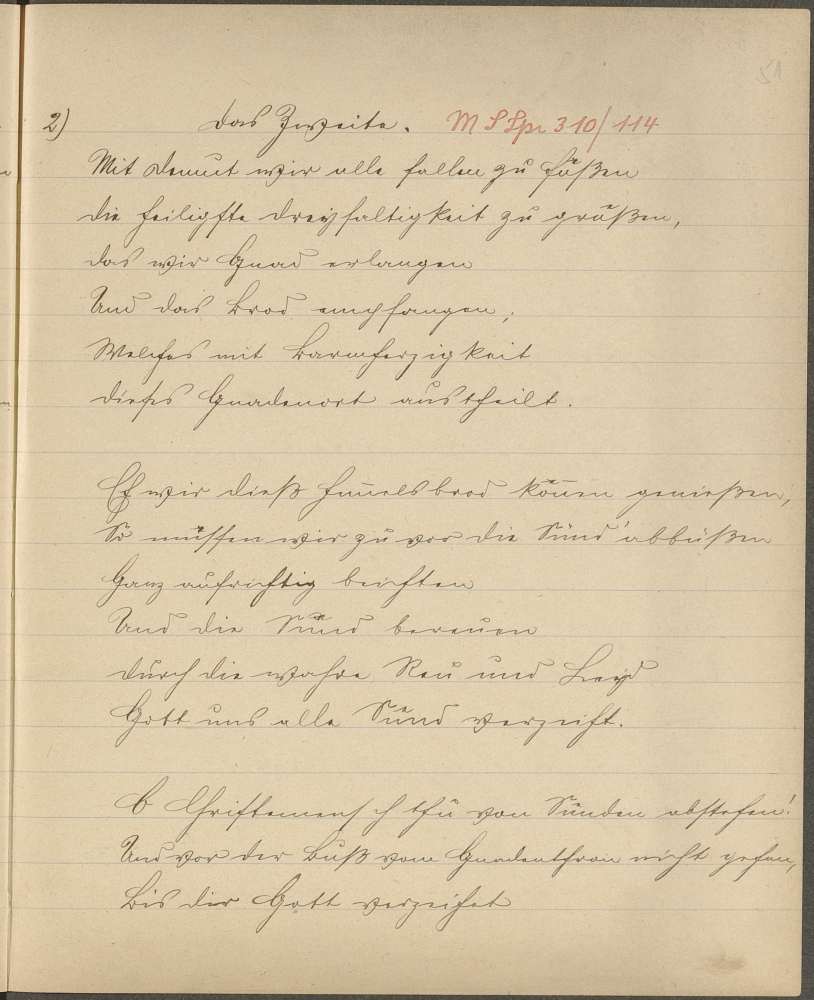 51
2) Das Zweite. M S Spr 310/114
Mit Demut wir alle fallen zu füßen
Die heiligste Dreyfaltigkeit zu grüßen,
Das wir Gnad erlangen
Und das Brod empfangen,
Welches mit Barmherzigkeit
Dieses Gnadenort austheilt.
Eh wir dieß Himelsbrod könen genießen,
So müssen wir zu vor die Sünd' abbüßen
Ganz aufrichtig beichten
Und die Sünd bereuen
Durch die wahre Reu und Leyd
Gott uns alle Sünd verzeiht.
O Christemensch thu von Sünden abstehen!
Und vor der Buß vom Gnadenthron nicht gehen,
Bis dir Gott verzeihet